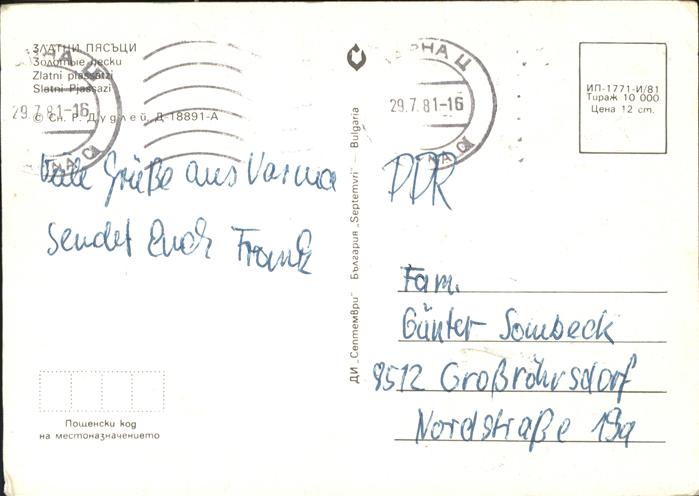 ЗЛАТНИ ПЯСЪЦИ
Золотые пески
Zlatni piassatzi
Slatni Pjassazi
© Сн. Р. Дудлей, Д 18891-А
29.7.81-16
Viele Grüße aus Varna
sendet Euch Frank
Пощенски код
на местоназначението
ДИ „Септември" България „Septemvri" — Bulgaria
ВАРНА Ц
29.7.81-16
ИП-1771-И/81
Тираж 10 000
Цена 12 ст.
DDR
Fam.
Günter Sombeck
8512 Großröhrsdorf
Nordstraße 19a